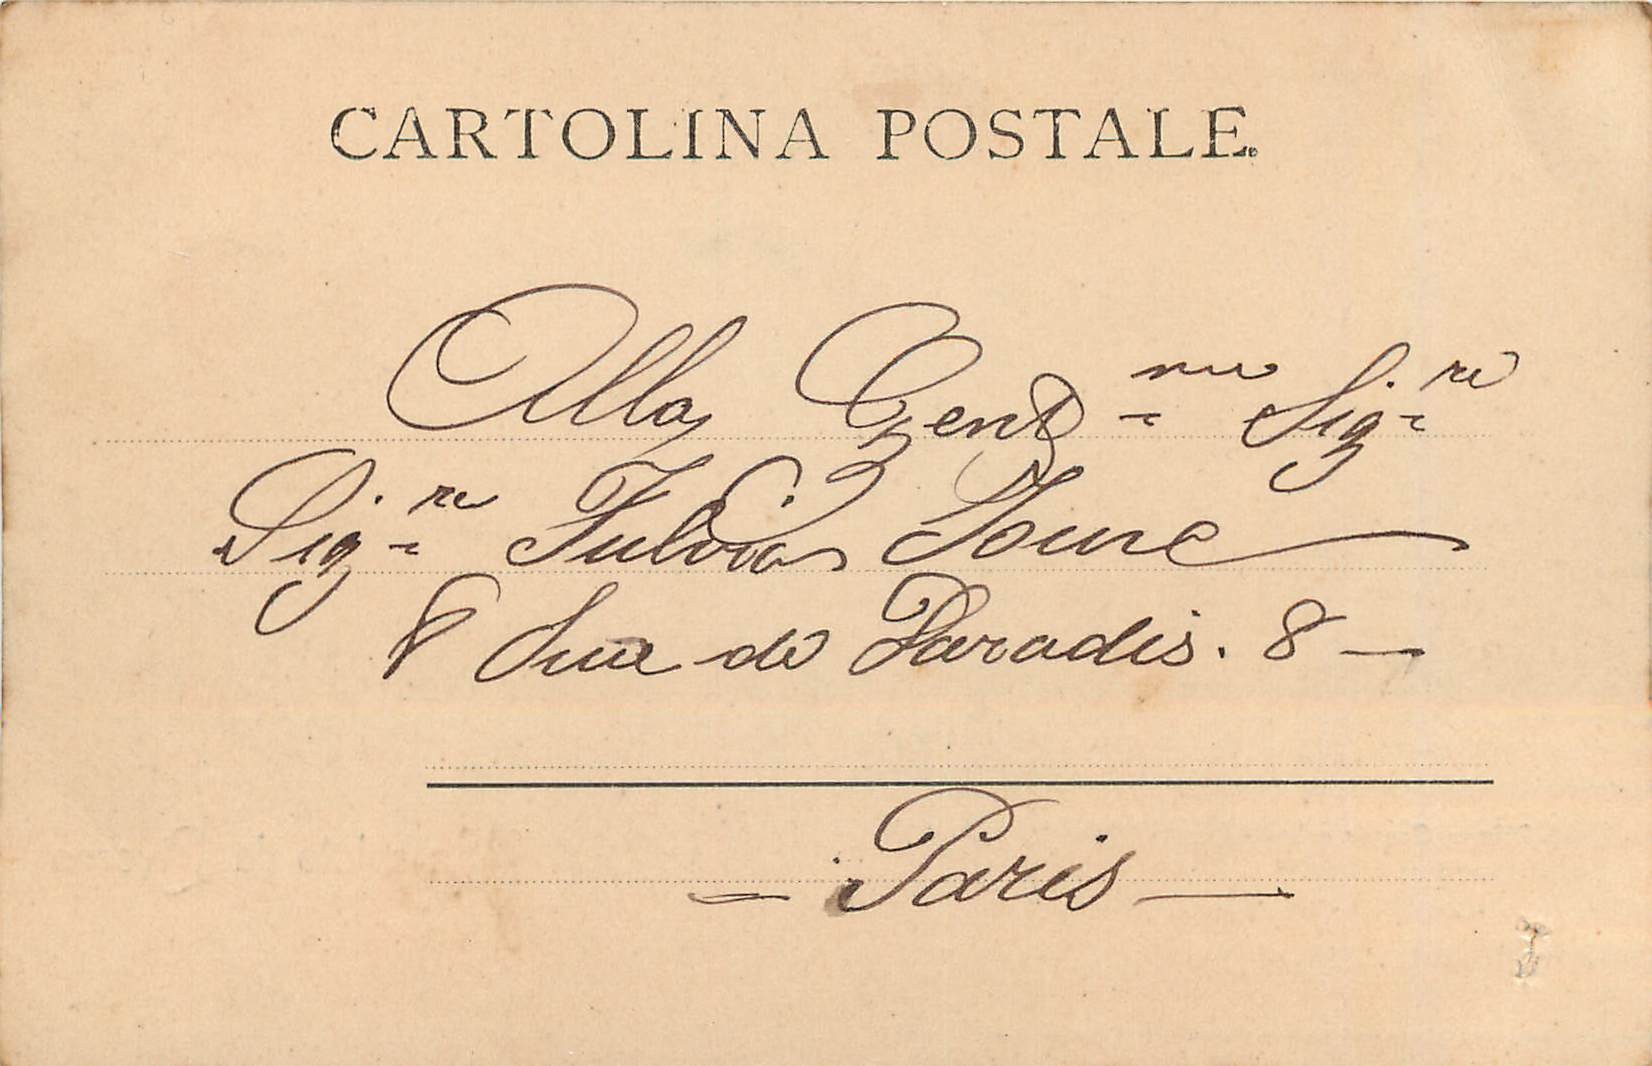 CARTOLINA POSTALE.
Alla Gent=ma Sig=ra
Sig=ra Fulvia
8 Rue de Paradis. 8 —
— Paris —